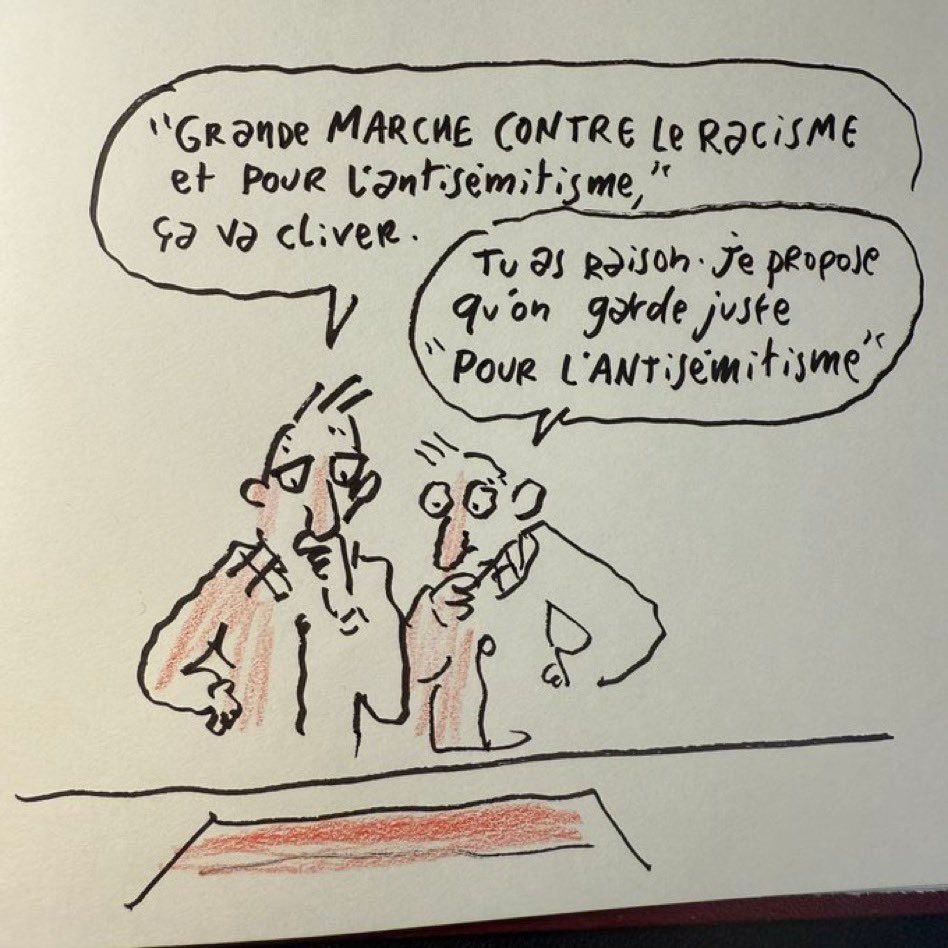 "GRANDE MARCHE CONTRE Le RACISME
et POUR l'antisémitisme,"
ça va cliver.
Tu as raison. Je propose
qu'on garde juste
"POUR L'ANTisémitisme"